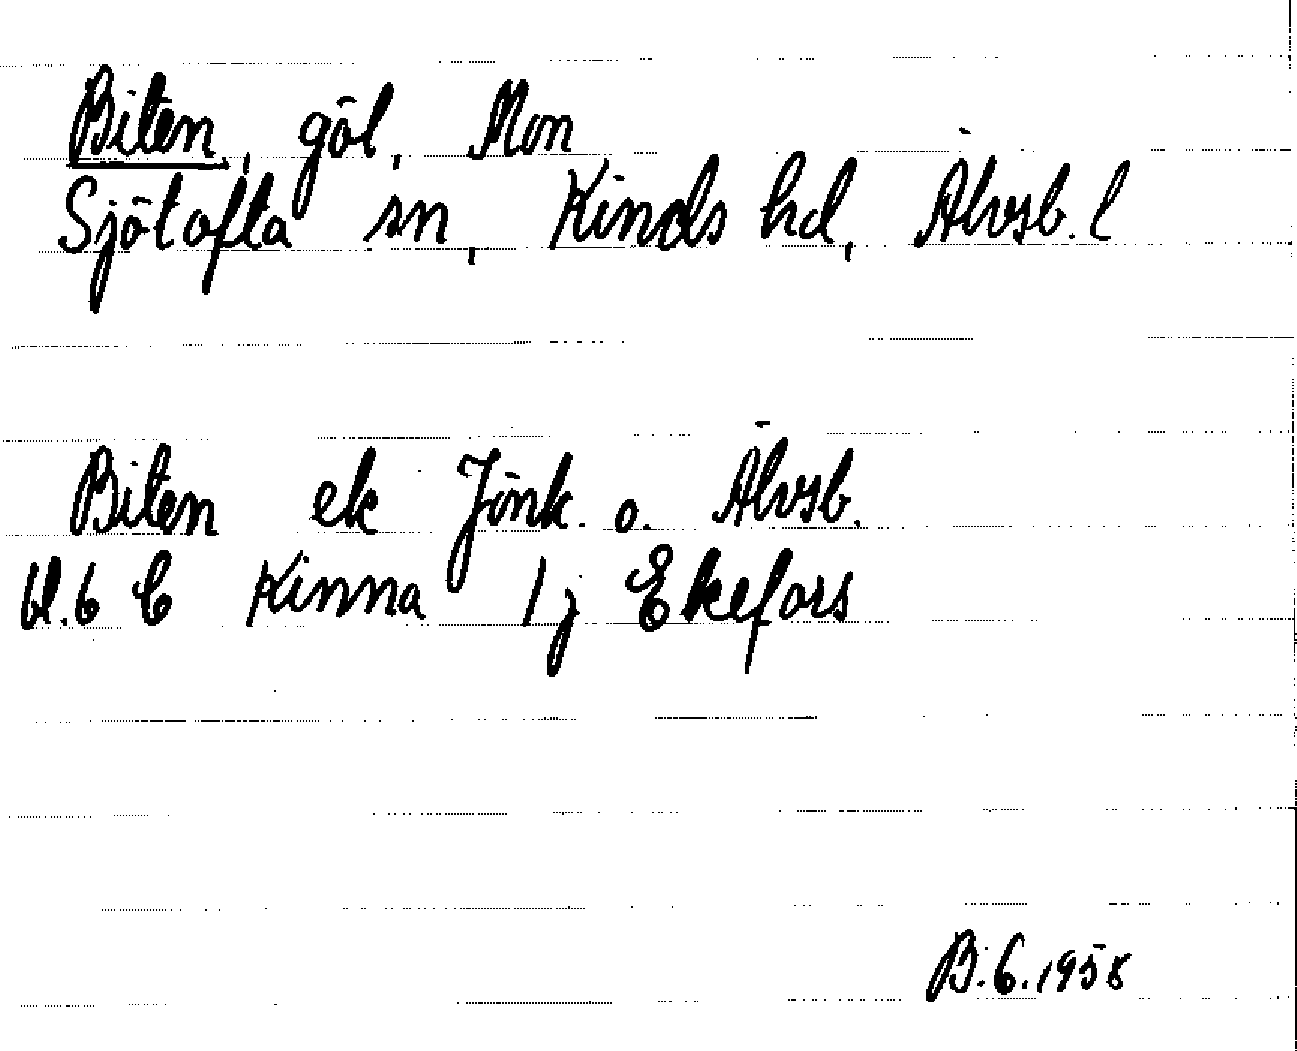 Biten, göl, Mon
Sjötofta sn, Kinds hd, Älvsb. l
Biten ek Jönk. o. Älvsb.
bl. 6 C Kinna 1 j Ekefors
B. G. 1958